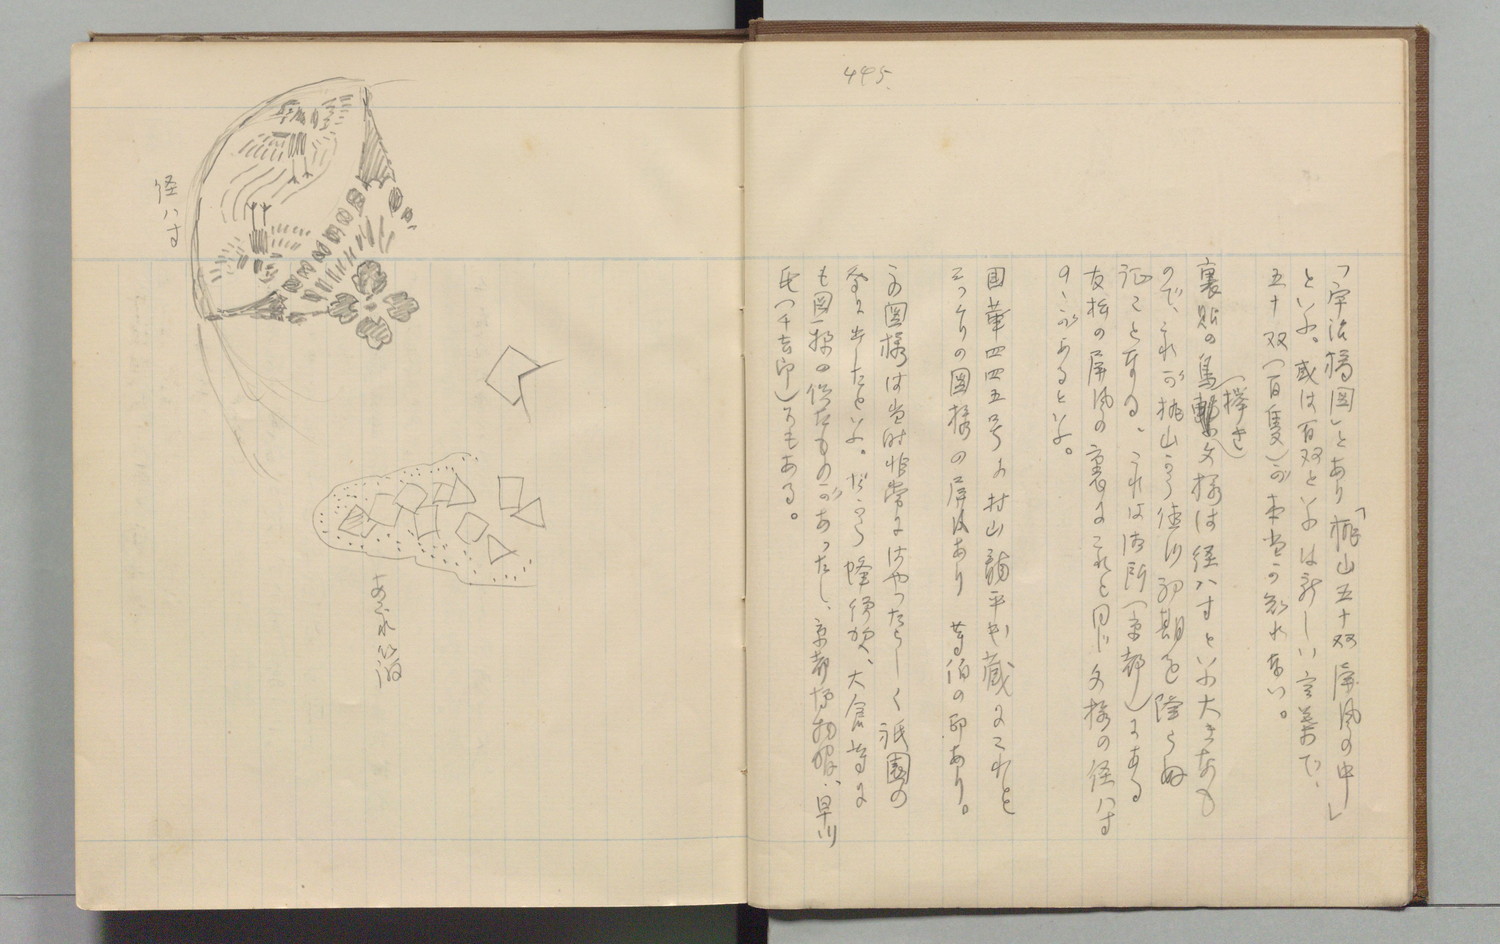 445
「宇治橋図」とあり「桃山五十双屏風の中」
といふ。或は百双といふは新しい言葉で、
五十双(百隻)が本当かも知れない。
(襷き)
裏貼の鳥 文様は径八寸といふ大きなも
ので、これが桃山から徳川初期を降らぬ
証こと なる、これは御所(京都)にある
友松の屏風の裏にこれと同じ文様の径八寸
の があるといふ。
国華四四五号に村山龍平氏蔵にこれと
そっくりの図様の屏風あり 等伯の印あり。
この図様は当時非常にはやったらしく祇園の
祭に出したといふ。だから 大倉 等に
も図様の似たものがあったし、京都博物館、早川
氏(千吉郎) もある。
径八寸
あぶれ箔